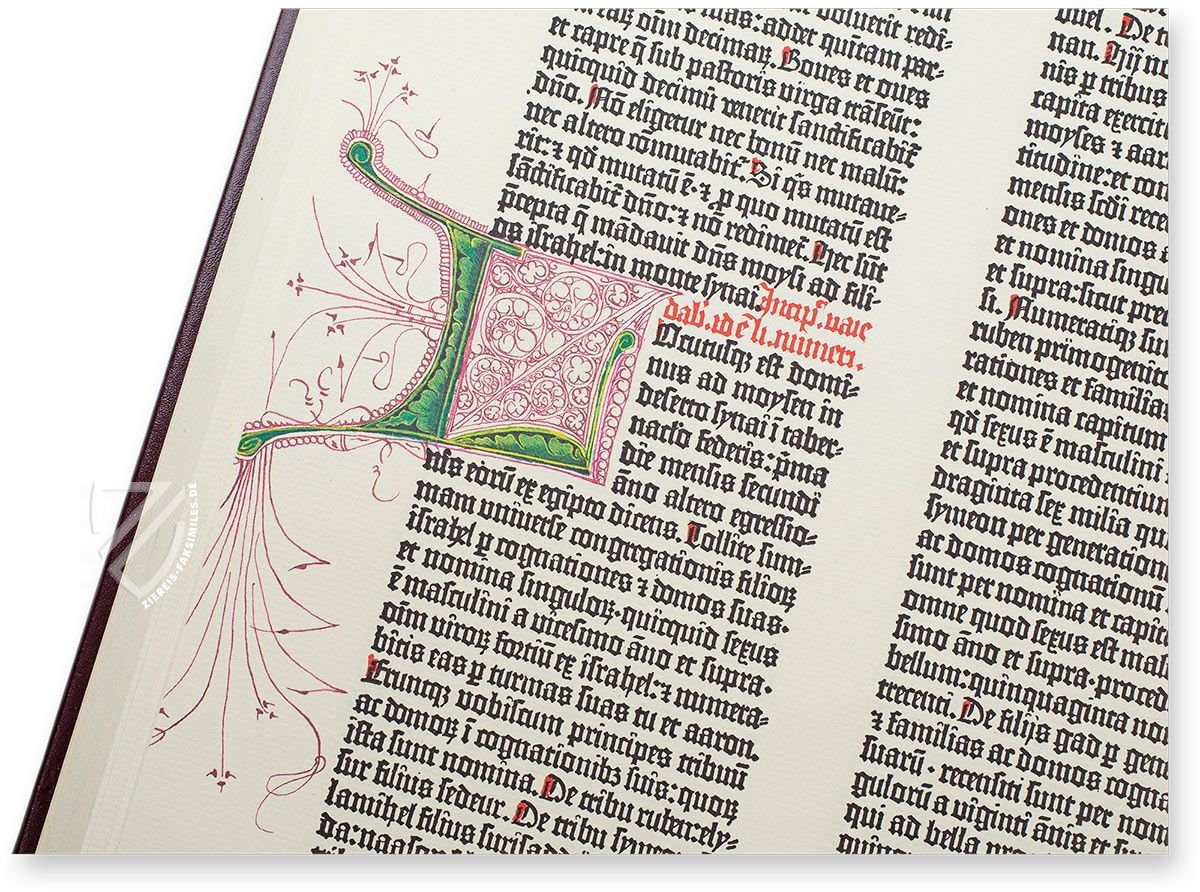 voluerit redi⸗
suas: addet quītam par⸗
oīm decimaꝝ. Boues et oues
et capre q̄ sub pastoris virga trāseūt:
quicquid decimū venerit sanctificabit̄
dño. Nō eligetur nec bonū nec malū:
nec altero cōmutabit̄. Si q̄s mutaue⸗
rit: ⁊ qd̄ mutatū ē· ⁊ ꝓ quo mutatū est
sāctificabit̄ dño: ⁊ nō redimet̄. Hec sūt
p̄cepta q̄ mādauit dn̄s moysi ad fili⸗
os israhel: in monte synai.
Incip̄. vaie
dab̄. id ē li. nūmeri.
Locutusqȝ est domi⸗
nus ad moysen in
deserto synai ī taber⸗
naclo federis: p̄ma
die mensis secundi
āno altero egressio⸗
nis eorū ex egipto dicens. Tollite sum⸗
mam vniuerse congregationis filioꝝ
israhel ꝑ cognationes ⁊ domos suas·
et nomina singuloꝝ· quicquid sexus
ē masculini a vicesimo āno et supra·
oīm viroꝝ fortiū ex israhel: ⁊ numera⸗
bitis eas ꝑ turmas suas tu et aaron.
Eruntqȝ vobiscum principes tribuū
ac domoꝝ ī cognationibȝ suis: quoꝝ
ista sunt nomina. De tribu ruben: ely⸗
sur filius sedeur. De tribu symeon:
lamihel filius surisaddai.
da: naason
De
nan. Hij
nis ꝑ tribus
capita exercit
moyses ⁊ aar
titudine: et con
mensis scdi rece
ones et domos
et nomina singu
et supra: sicut pre
si. Numeratiqȝ
ruben primogeni
rationes et familia
et nomina capitum
qd̄ sexus ē masculini
et supra procedentium
draginta sex milia qu
symeon per generation
ac domos cognationū
sunt per nomina et capit
omne quod sexus est mas
simo āno et supra· proced
bellum: quinquaginta no
trecenti. De filijs gad ꝑ gen
⁊ familias ac domos cogna
suarū· recensiti sunt per nom
gulorū a viginti ānis et
qui ad bella
ZIEREIS-FAKSIMILES.DE